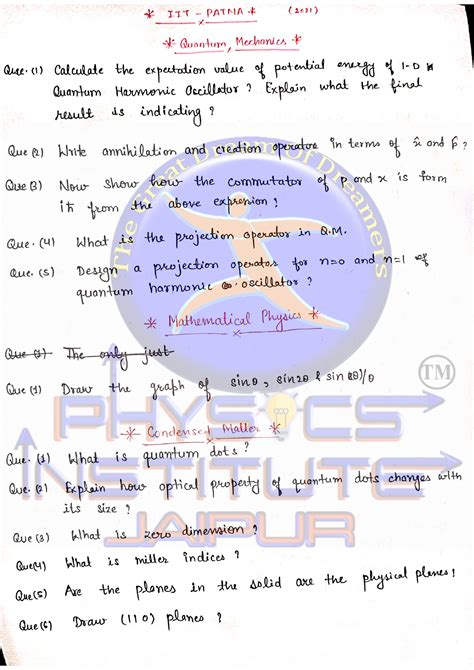 * IIT - PATNA * (2021)
* Quantum Mechanics *
Que. (1) Calculate the expectation value of potential energy of 1-D
Quantum Harmonic Oscillator? Explain what the final
result is indicating?
Que (2) Write annihilation and creation operator in terms of x̂ and p̂?
Que (3) Now show how the commutator of p and x is form
iħ from the above exprenion?
Que. (4) What is the projection operator in Q.M.
Que. (5) Design a projection operator for n=0 and n=1 of
quantum harmonic oscillator?
* Mathematical Physics *
Que (1) The only just
Que (1) Draw the graph of sinθ, sin2θ & sin(2θ)/θ
TM
* Condensed Matter *
Que. (1) What is quantum dots?
Que. (2) Explain how optical property of quantum dots changes with
its size?
Que (3) What is zero dimension?
Que (4) What is miller indices?
Que (5) Are the planes in the solid are the physical planes?
Que (6) Draw (110) planes?
The Great Dream of Dreamers
PHYSICS
INSTITUTE
JAIPUR